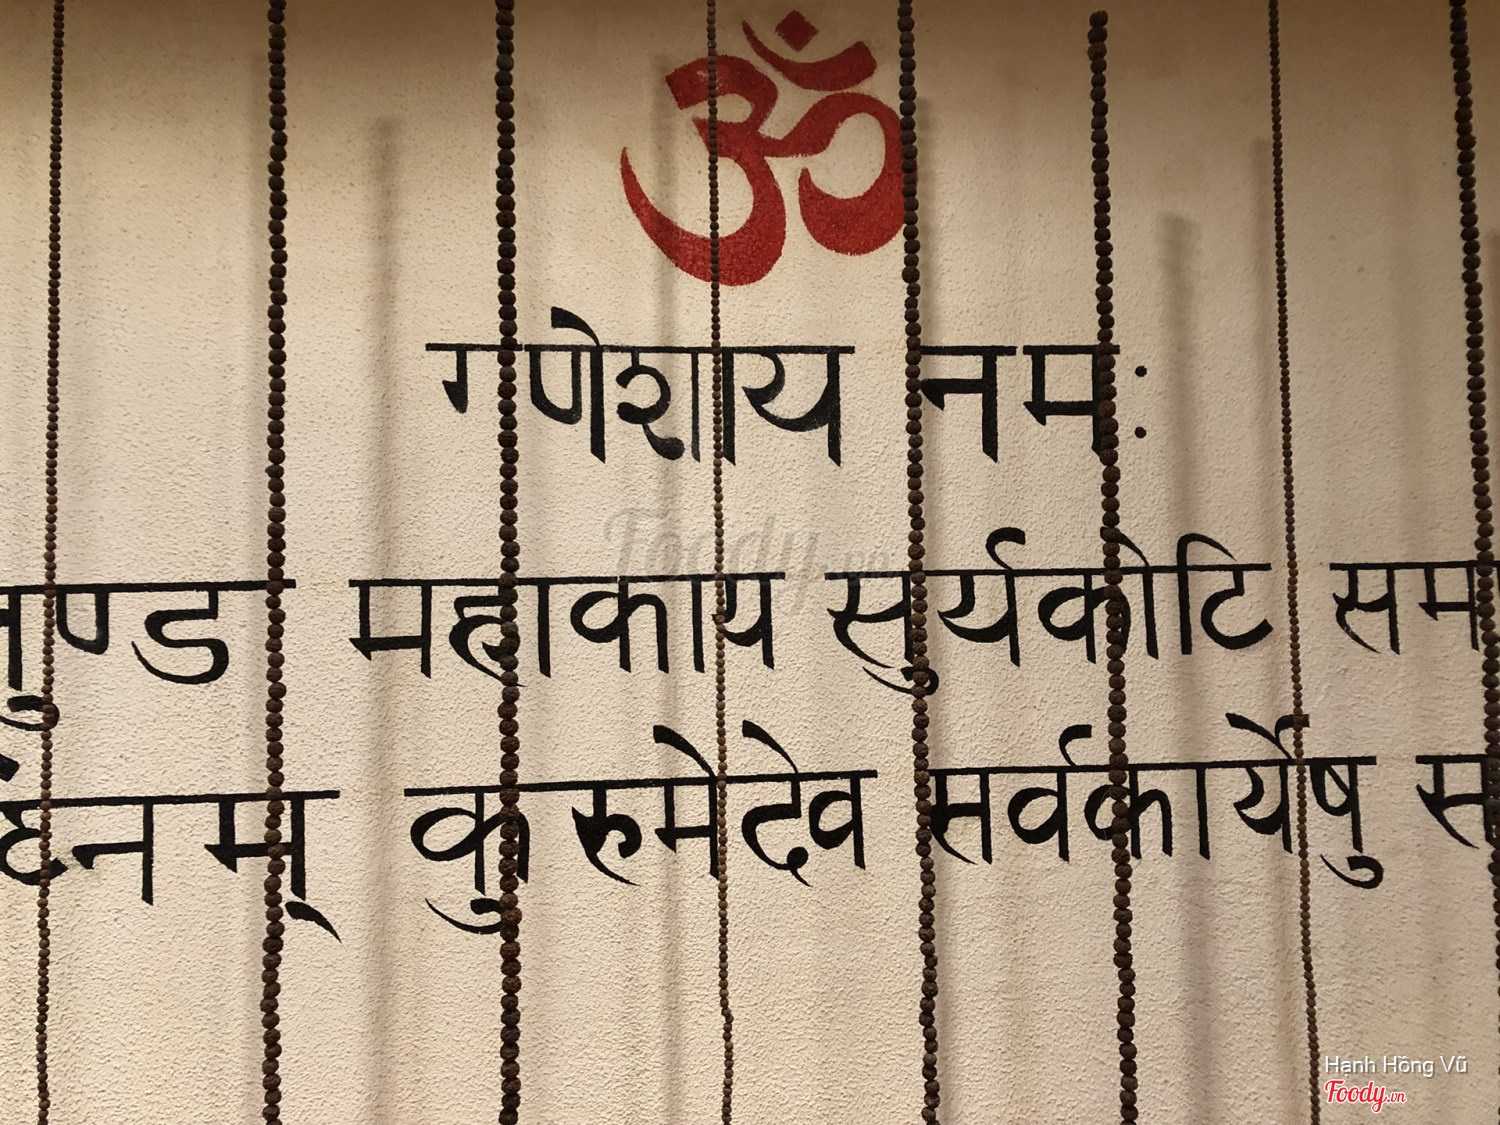 ॐ
गणेशाय नमः
तुण्ड महाकाय सुर्यकोटि सम
कुरुमेदेव सर्वकार्येषु स
Foody.vn
Hạnh Hồng Vũ
Foody.vn